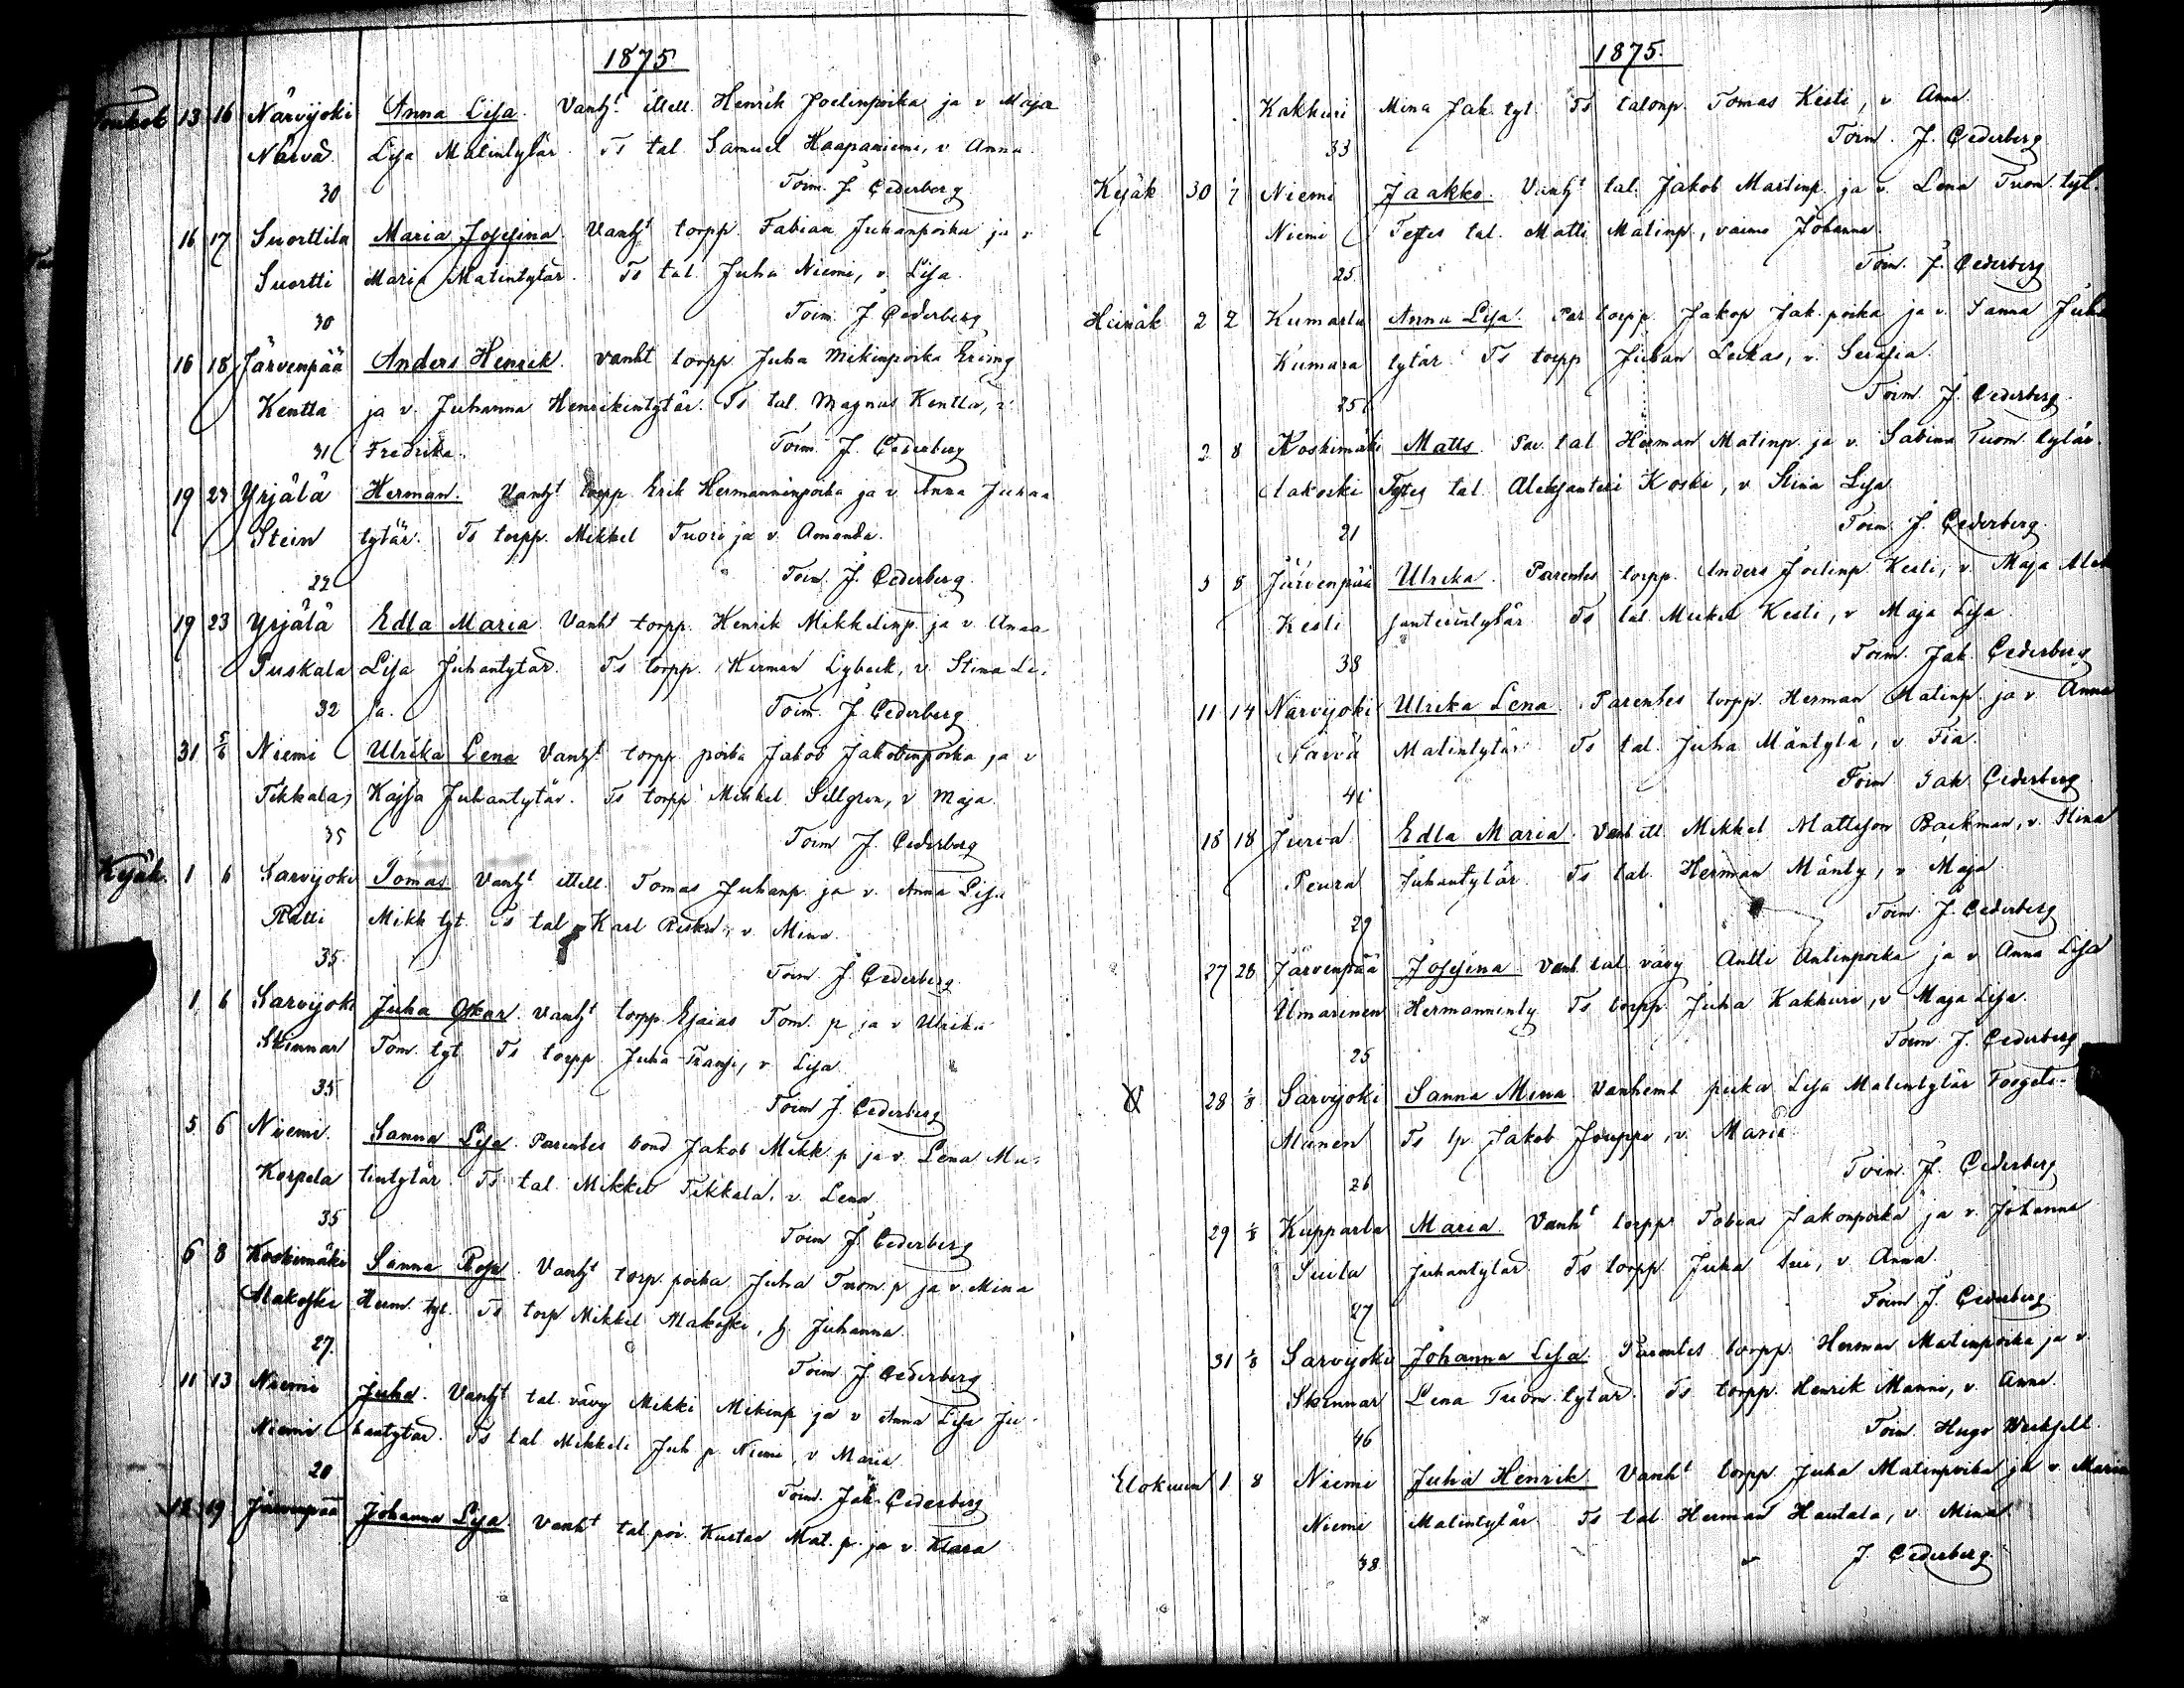 1875.
Toukok 13 16 Närvijoki Anna Lisa. Vanht ittell. Henrik Joelinpoika ja v Maja
Närvä Lisa Matintytär. Ts tal. Samuel Haapaniemi, v. Anna.
30 Toim. J. Cederberg
16 17 Suorttila Maria Josefina. Vanht torpp. Fabian Juhanpoika ja v
Suortti Maria Matintytär. Ts tal. Juha Niemi, v. Lisa.
30 Toim. J. Cederberg
16 18 Järvenpää Anders Henrik. vanht torpp. Juha Mikinpoika
Kentta ja v. Juhanna Henrikintytär. Ts tal. Magnus Kentta, v.
31 Fredrika. Toim. J. Cederberg
19 23 Yrjälä Herman. Vanht torpp. Erik Hermanninpoika ja v. Anna Juhan
Stein tytär. Ts torpp. Mikkel Tuori ja v. Amanda.
22 Toim. J. Cederberg.
19 23 Yrjälä Edla Maria. Vanht torpp. Henrik Mikkelinp. ja v. Anna
Puskala Lisa Juhantytär. Ts torpp. Herman Lybeck, v. Stina Li-
32 sa. Toim. J. Cederberg
31 5/6 Niemi Ulrika Lena Vanht torpp. poika Jakob Jakobinpoika ja v
Tikkala Kajsa Juhantytär. Ts torpp. Mikkel Sillgren, v Maja.
35 Toim J. Cederberg
Kesäk. 1 6 Sarvijoki Tomas Vanht ittell. Tomas Juhanp. ja v. Anna Lisa
Mikk. tyt. Ts tal Karl v. Mina.
35 Toim J. Cederberg.
1 6 Sarvijoki Juha Oskar. Vanht torpp. Esaias Tom. p ja v Ulrika
Skinnar Tom. tyt. Ts torpp. Juha v Lisa.
35 Toim J. Cederberg
5 6 Niemi. Sanna Lisa. Parentes bond Jakob Mikk. p ja v. Lena Ma-
Korpela tintytär. Ts tal. Mikkel Tikkala, v. Lena
35 Toim J. Cederberg
6 8 Koskimäki Sanna Vanht torp. poika Juha Tuom. p ja v. Mina
Alakoski Herm. tyt. Ts torp Mikkel Alakoski, h. Juhanna.
27. Toim J. Cederberg
11 13 Niemi Juha. Vanht tal. vävy Mikki Mikinp ja v Anna Lisa Ju-
Niemi hantytär. Ts tal Mikkeli Juh. p Niemi, v Maria
20 Toim. Jak. Cederberg
12 19 Järvenpää Johanna Lisa. Vanht tal. poi. Kustav Mat. p. ja v. Klara
1875.
Kakkuri Mina Jak. tyt. Ts talonp. Tomas Kesti, v Anna.
33 Toim. J. Cederberg
Kesäk 30 1/7 Niemi Jaakko. Vanht tal. Jakob Martinp. ja v. Lena Tuom. tyt.
Niemi Testes tal. Matti Matinp., vaimo Johanna.
25. Toim. J. Cederberg
Heinäk 2 2 Kumarla Anna Lisa. Par torpp. Jakop Jak. poika ja v. Sanna Juha
Kumara tytär. Ts torpp Juhan Leikas, v. Serafia.
25 Toim. J. Cederberg.
2 8 Koskimäki Matts. Par. tal Herman Matinp. ja v. Sabina Tuom. tytär.
Alakoski Testes tal. Aleksanteri Koski, v Stina Lisa
21 Toim. J. Cederberg.
5 8 Järvenpää Ulrika. Parentes torpp. Anders Joelinp. Kesti, v. Maja Alek
Kesti santerintytär Ts tal. Kesti, v Maja Lisa.
38 Toim. Jak. Cederberg
11 14 Närvijoki Ulrika Lena. Parentes torpp. Herman Matinp. ja v. Anna
Matintytär. Ts tal. Juha Mäntylä, v Fia.
41 Toim Jak. Cederberg
18 18 Jurva Edla Maria. Vanh. itl. Mikkel Mattsson Backman, v. Stina
Peura Juhantytär. Ts tal. Herman Mänty, v Maja
29 Toim. J. Cederberg
27 28 Järvenpää Josefina Vanh. tal. vävy Antti Antinpoika ja v Anna Lisa
Ilmarinen Hermanninty. Ts torpp. Juha Kakkuri, v Maja Lisa.
25 Toim J. Cederberg
28 1/8 Sarvijoki Sanna Mina Vanhemt piika Lisa Matintytär
Alanen Ts tp. Jakob Jouppi, v. Maria
26 Toim. J. Cederberg
29 1/8 Kupparla Maria. Vanht torpp. Tobias Jakonpoika ja v. Johanna
Suila Juhantytär. Ts torpp. Juha v. Anna.
27 Toim J. Cederberg
31 1/8 Sarvijoki Johanna Lisa. Parentes torpp. Herman Matinpoika ja v.
Skinnar Lena Tuom. tytär. Ts. torpp. Henrik Manni, v. Anna.
46 Toim. Hugo
Elokuun 1 8 Niemi Juha Henrik. Vanht torpp. Juha Matinpoika ja v. Maria
Niemi Matintytär. Ts tal. Herman Hautala, v. Mina.
38. J. Cederberg.